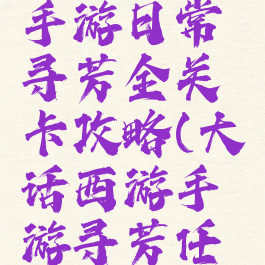 手游日常
寻芳全关
卡攻略(大
话西游手
游寻芳任